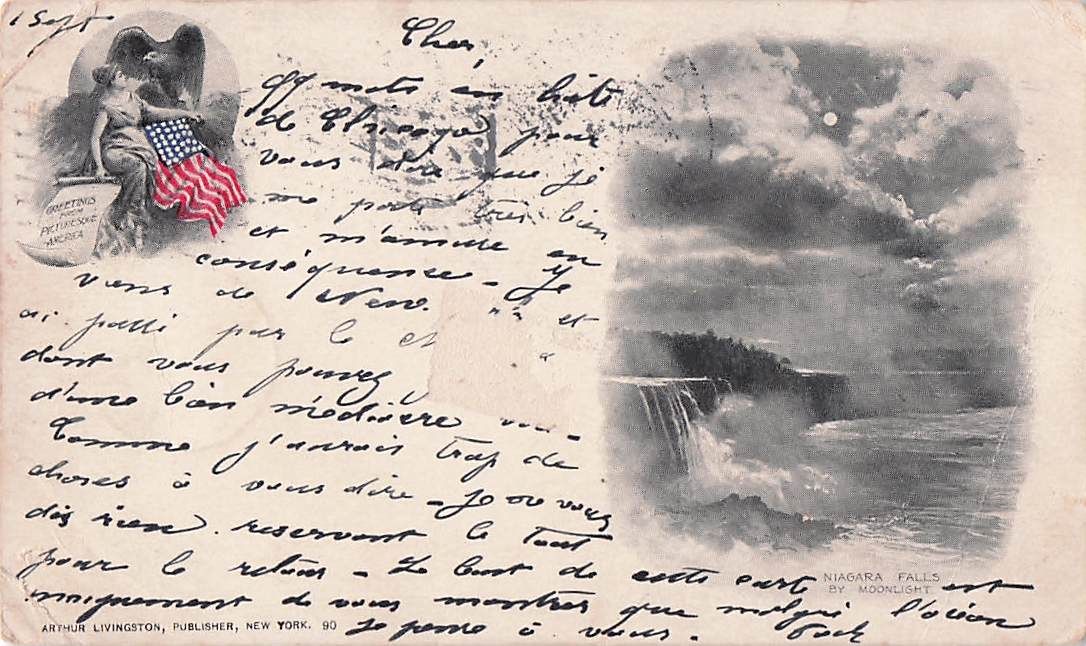 1 Sept
Cher,
qq mots en hâte
de Chicago pour
vous dire que je
me porte très bien
et m'amuse en
conséquence - Je
viens de New et
ai passé par le
dont vous pouvez
d'une bien médiocre
Comme j'aurais trop de
choses à vous dire - Je ne vous
dis rien reservant le tout
pour le retour - Le but de cette carte est
uniquement de vous montrer que malgré l'océan
Je pense à vous.
GREETINGS
FROM
PICTURESQUE
AMERICA
NIAGARA FALLS
BY MOONLIGHT.
ARTHUR LIVINGSTON, PUBLISHER, NEW YORK. 90